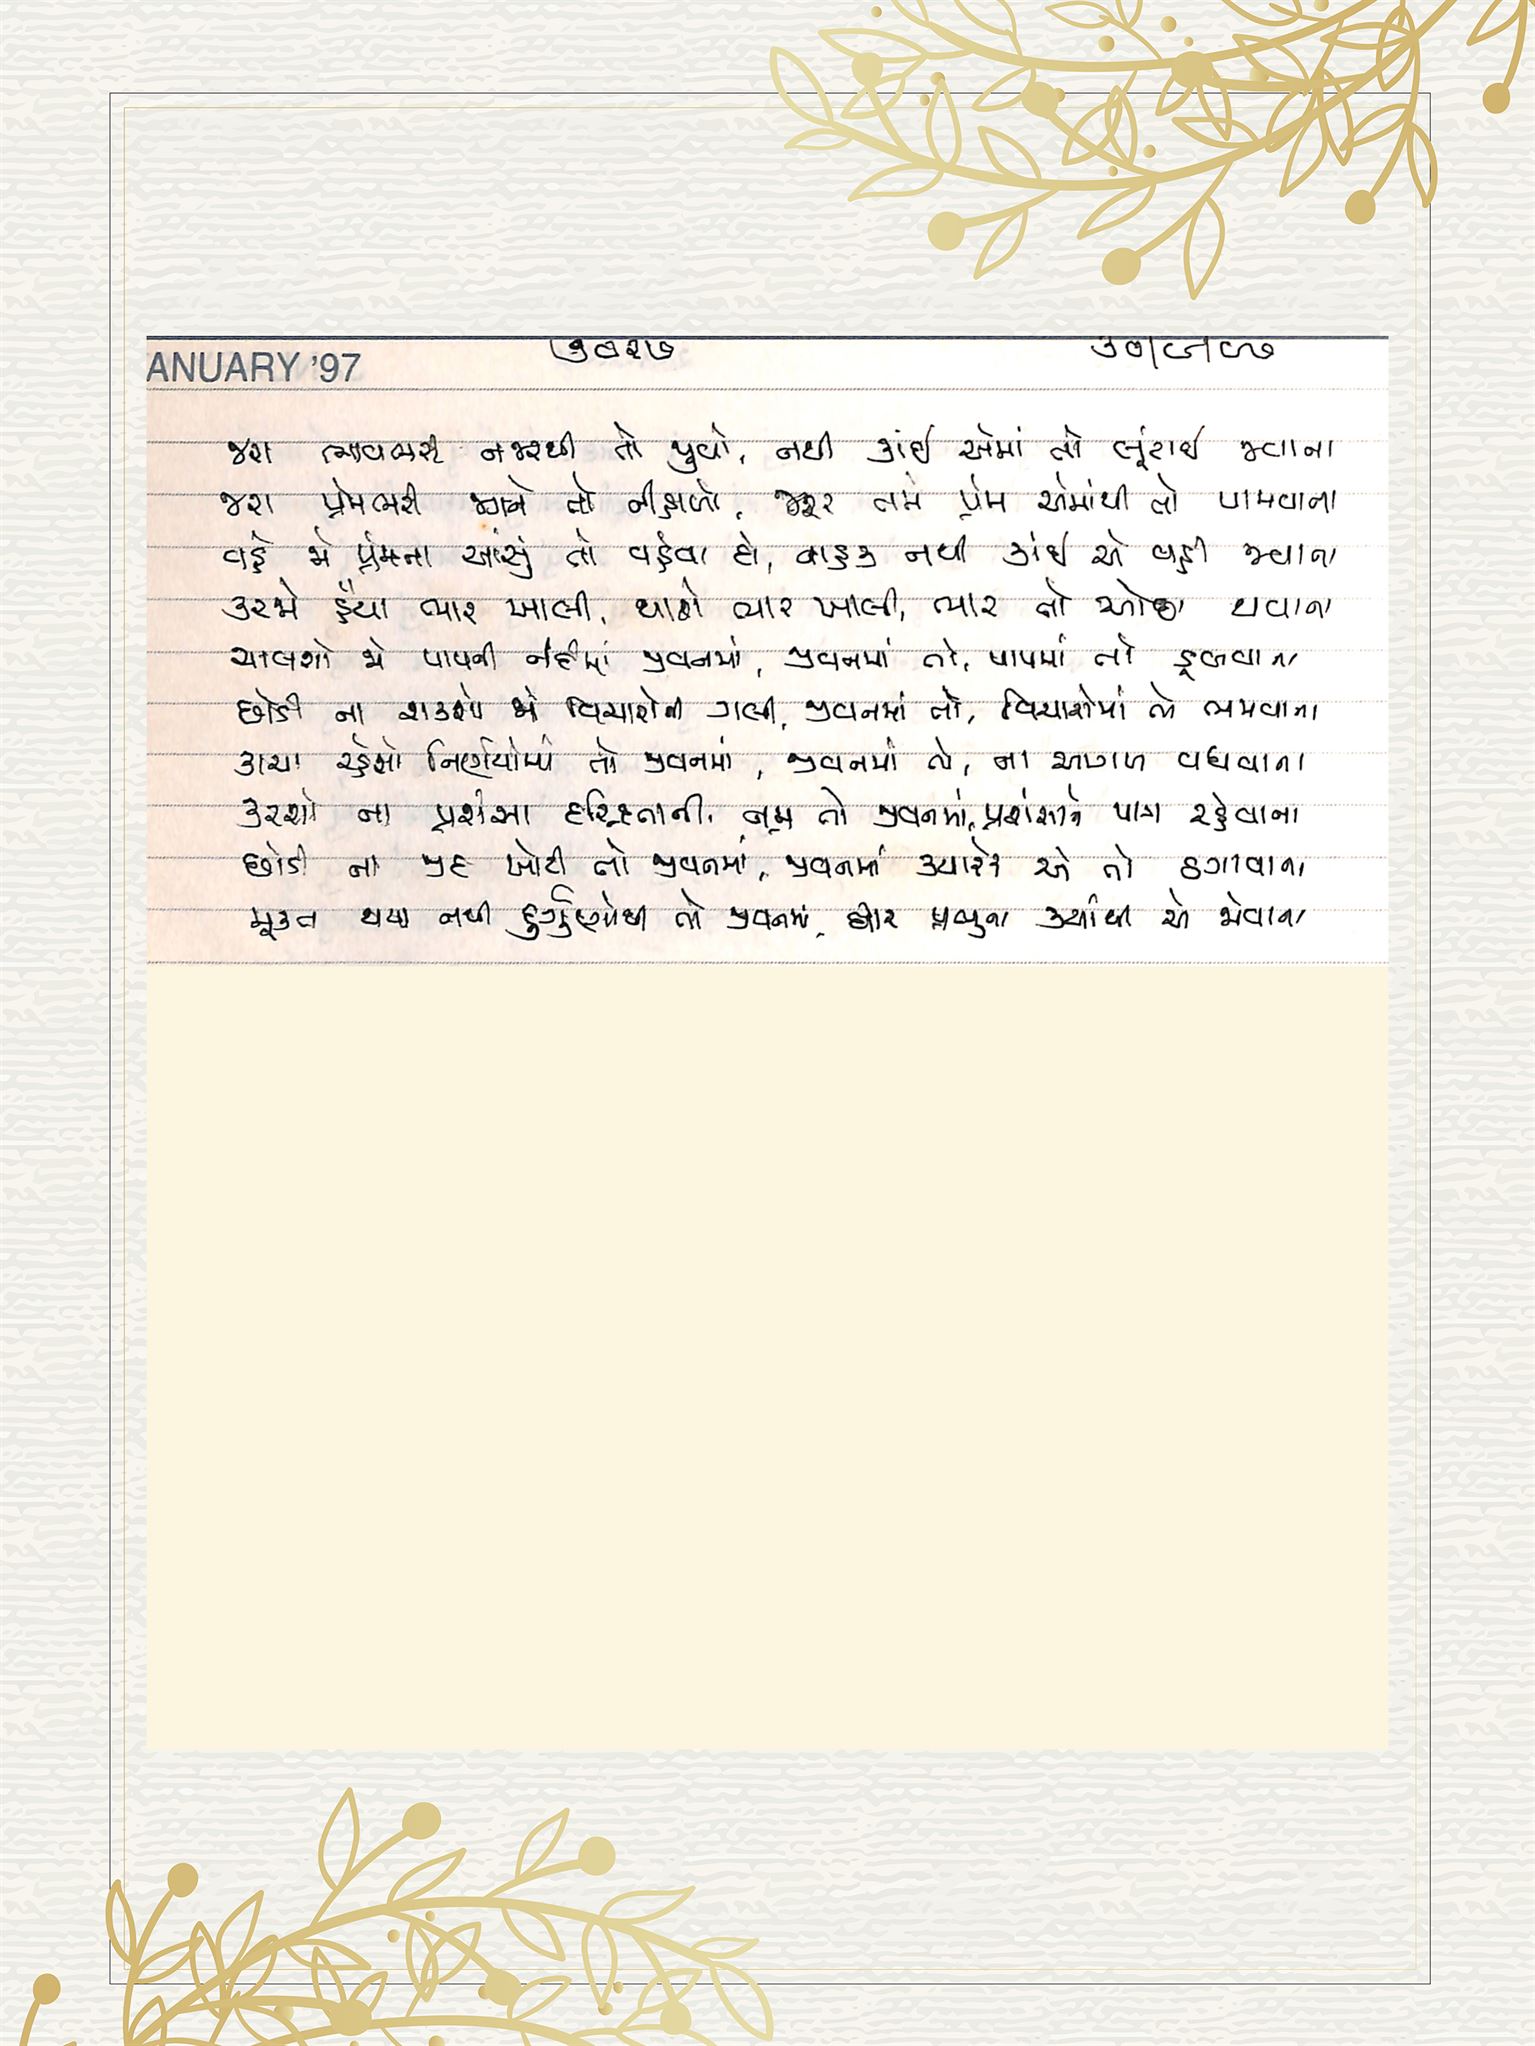 ANUARY '97
જરા ભાવભરી નજરથી તો જુવો, નથી કાંઈ એમાં તો લૂંટાઈ જવાના
જરા પ્રેમભરી જાને તો નીહાળો, જરૂર તમે પ્રેમ એમાંથી તો પામવાના
વહે જો પ્રેમના આંસું તો વહેવા દો, વાહક નથી કાંઈ એ વહી જવાના
કરજો હૈયા ભાર ખાલી, થાશે ભાર ખાલી, ભાર તો ઓછા થવાના
ચાલશો જો પાપની નદીમાં જીવનમાં, જીવનમાં તો, પાપમાં તો ડૂબવાના
છોડી ના શકશો જો વિચારોની ગલી, જીવનમાં તો, વિચારોમાં તો ભમવાના
કાચા રહેશો નિર્ણયોમાં તો જીવનમાં, જીવનમાં તો, ના આગળ વધવાના
કરશો ના પ્રશંસા દરિદ્રતાની, નમ્ર તો જીવનમાં, પ્રશંસાને પાત્ર રહેવાના
છોડી ના જીદ ખોટી તો જીવનમાં, જીવનમાં ક્યારેક એ તો ઠગાવાના
મૂક્ત થયા નથી દુર્ગુણોથી તો જીવનમાં, દ્વાર પ્રભુના ક્યાંથી એ જોવાના